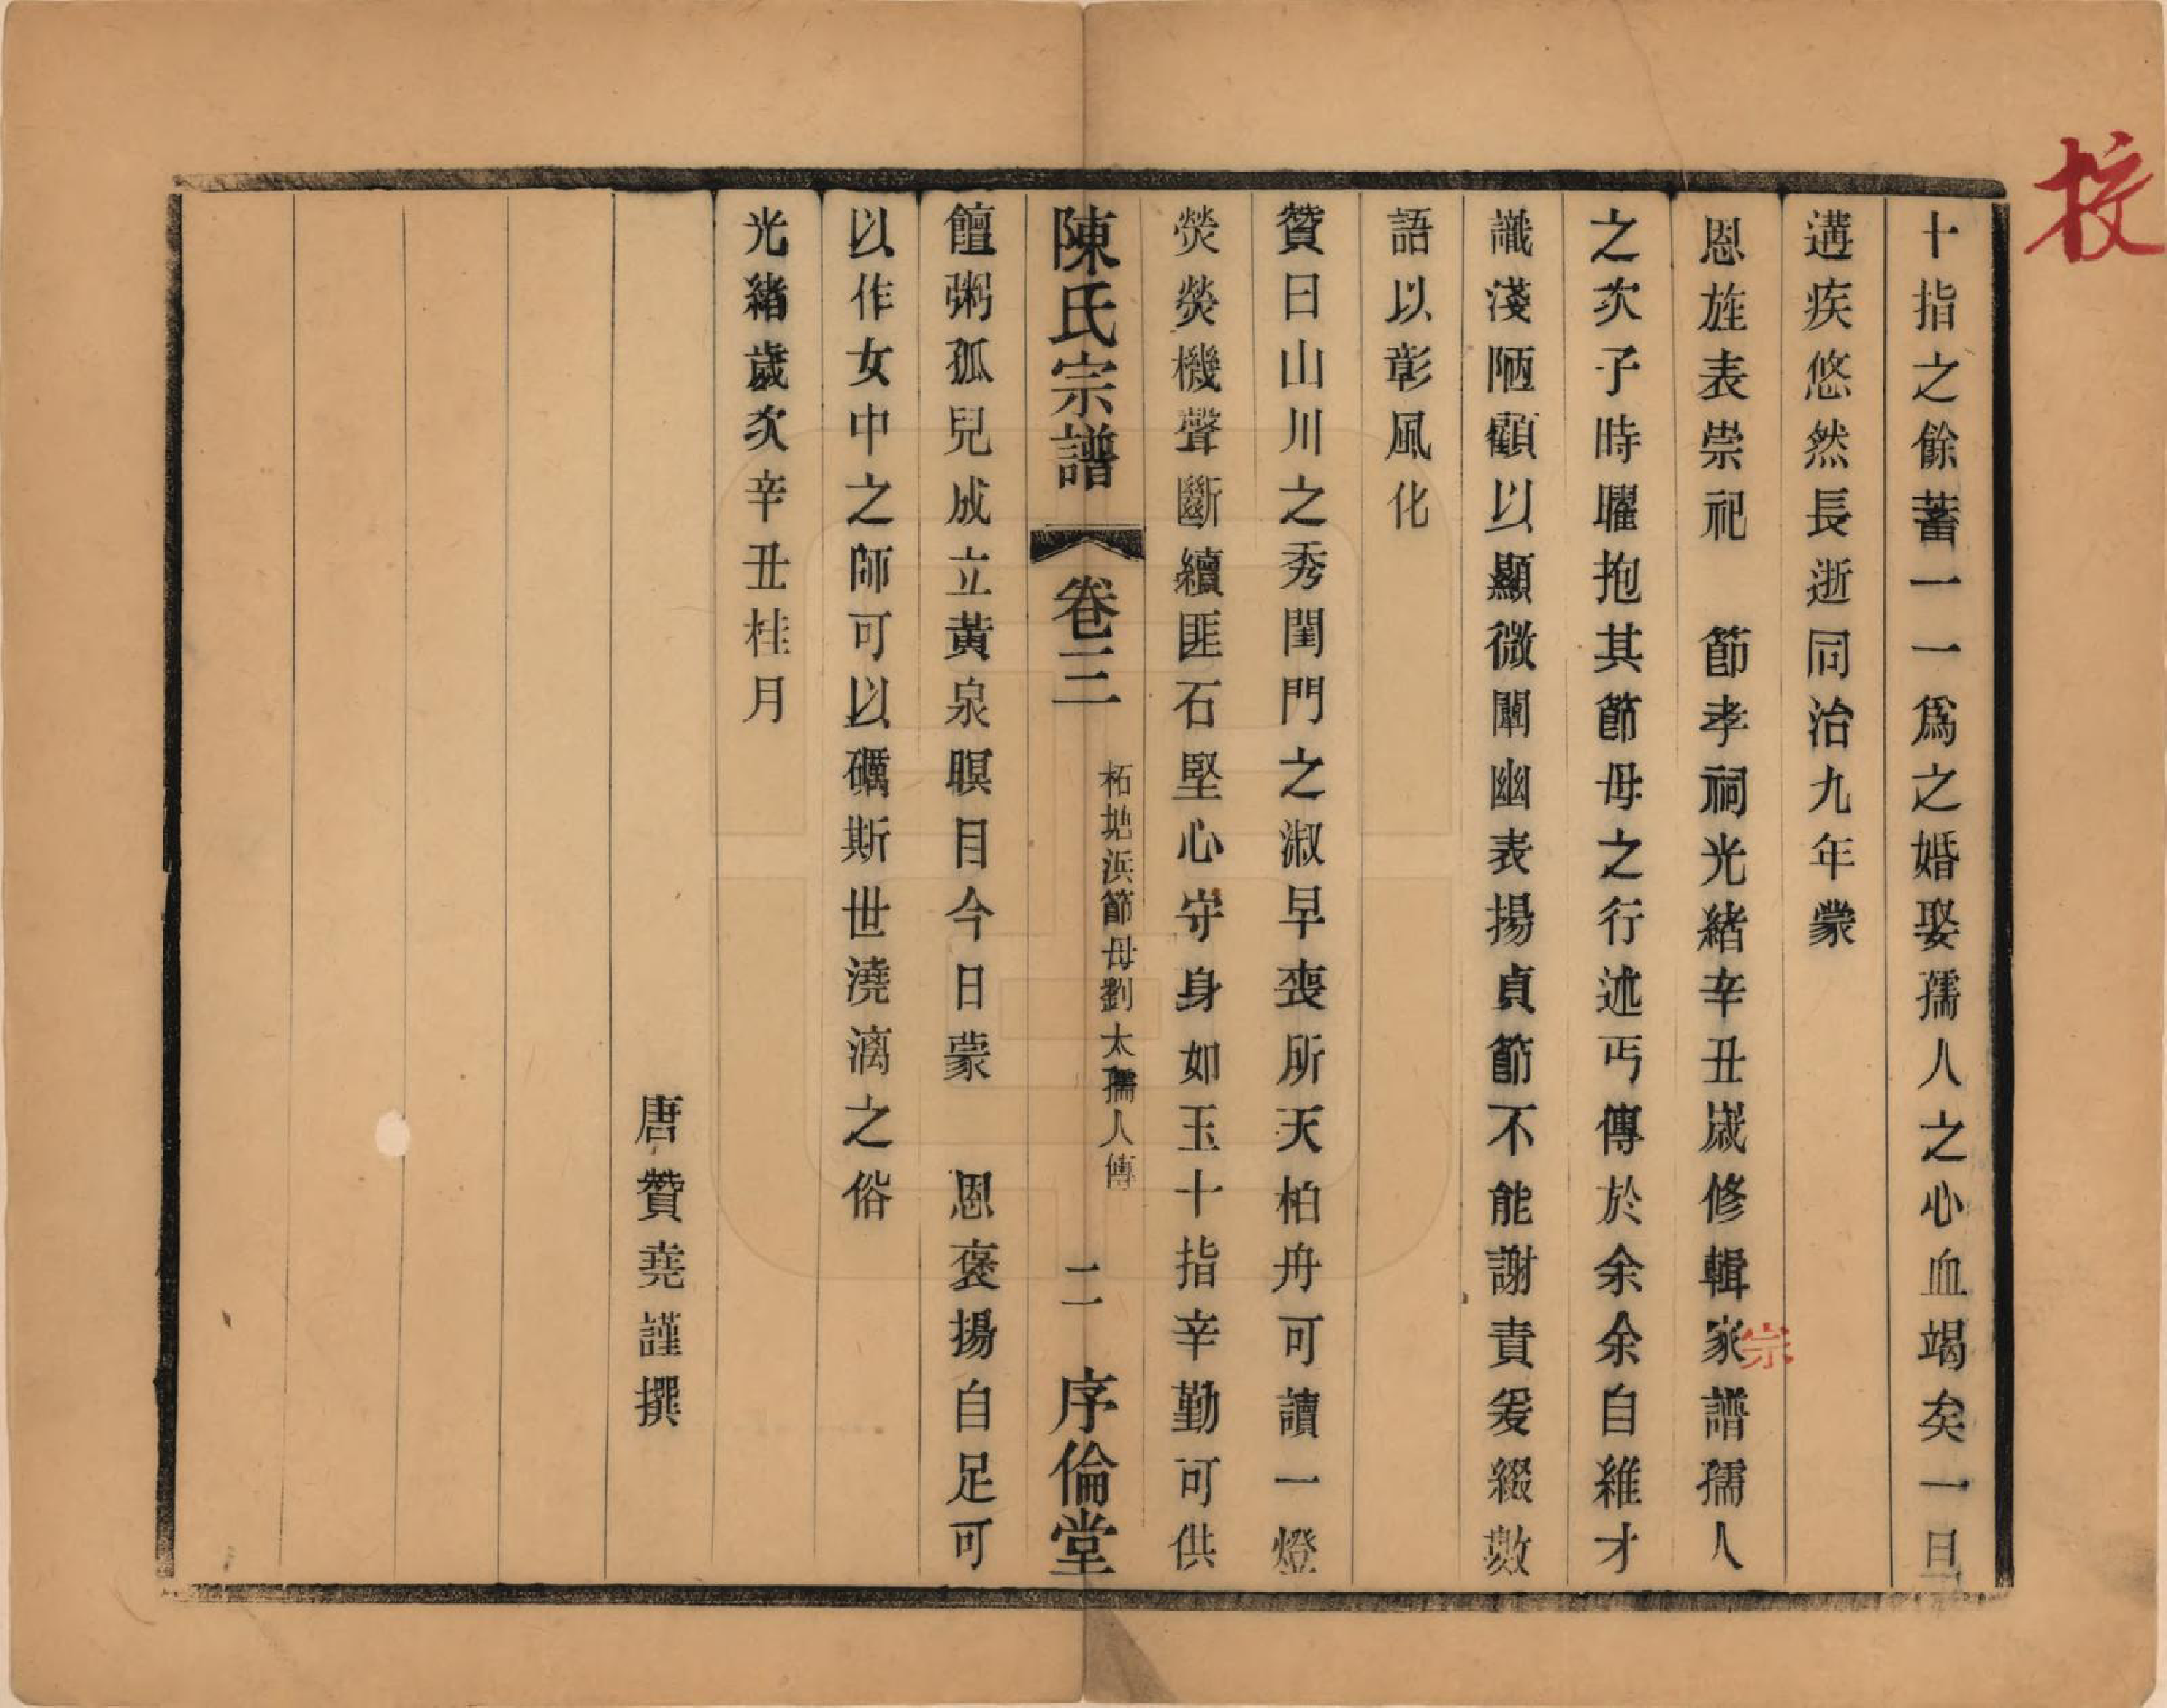 校
十指之餘蓄一一爲之婚娶孺人之心血竭矣一日
遘疾悠然長逝同治九年蒙
恩旌表崇祀　節孝祠光緒辛丑歲修輯家譜孺人
宗
之次子時曜抱其節母之行述丐傳於余余自維才
識淺陋顧以顯微闡幽表揚貞節不能謝責爰綴數
語以彰風化
贊曰山川之秀閨門之淑早喪所天柏舟可讀一燈
熒熒機聲斷續匪石堅心守身如玉十指辛勤可供
陳氏宗譜　卷三　柘塘浜節母劉太孺人傳　二　序倫堂
饘粥孤兒成立黃泉瞑目今日蒙　恩褒揚自足可
以作女中之師可以礪斯世澆漓之俗
光緒歲次辛丑桂月
唐贊堯謹撰